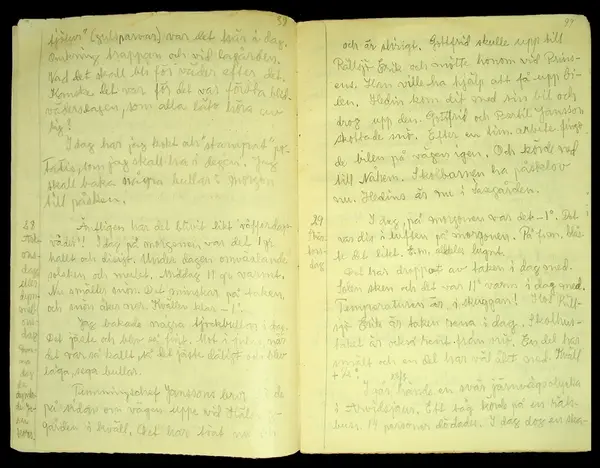 93
fjälgor" (gulsparvar) var det här i dag.
omkring trappen och vid lagården.
Vad det skall bli för väder efter det.
Kanske det var för det var första blid-
vädersdagen, som alla låto höra
sig!
I dag har jag kokt ett "stamgrat" po-
tatis, som jag skall ha i degen. Jag
skall baka några bullar i morgon
till påsken.
28
Äntligen har det blivit likt våffeldags-
väder!! I dag på morgonen, var det 1 gr.
kallt och disigt. Under dagen omväxlande
solsken och mulet. Middag 11 gr. varmt.
Nu smälter snön. Det minskar på taken,
och snön åker ner. Kvällen klar -1°.
Jag bakade några bullar i dag.
Det jäste och blev så fint. Mot i
det var så kallt så det jäste dåligt och blev
låga, sega bullar.
Janssons
på sidan om vägen uppe vid
gården i kväll. Det har
94
och är dirigt. Gottfrid skulle upp till
Rällsjö Erik och mötte honom vid Prins-
ens. Han ville ha hjälp att få upp bi-
len. Hedin kom dit med sin bil och
drog upp den. Gottfrid och Bertil Jansson
skottade snö. Efter en tim. arbete fingo
de bilen på vägen igen. Och körde ved
till Näken. Skolbarnen ha påsklov
nu. Hedins är nu i Saxgården.
29
I dag, på morgonen var det -1°. Det
var dis i luften på morgonen. På f.m. blås-
te det litet. E.m. alldeles lugnt.
Det har droppat av taken i dag med.
Solen sken och det var 11° varm i dag med.
Temperaturen är i skuggan! Hos Räll-
sjö Erik är taken rena i dag. Skolhus-
taket är också rent från snö. En del har
smält och en del har väl åkt ned. Kväll
+2°.
I går hände en svår järnvägsolycka
i Arvidsjaur. Ett tåg körde på en räls-
buss. 14 personer dödades. I dag dog en